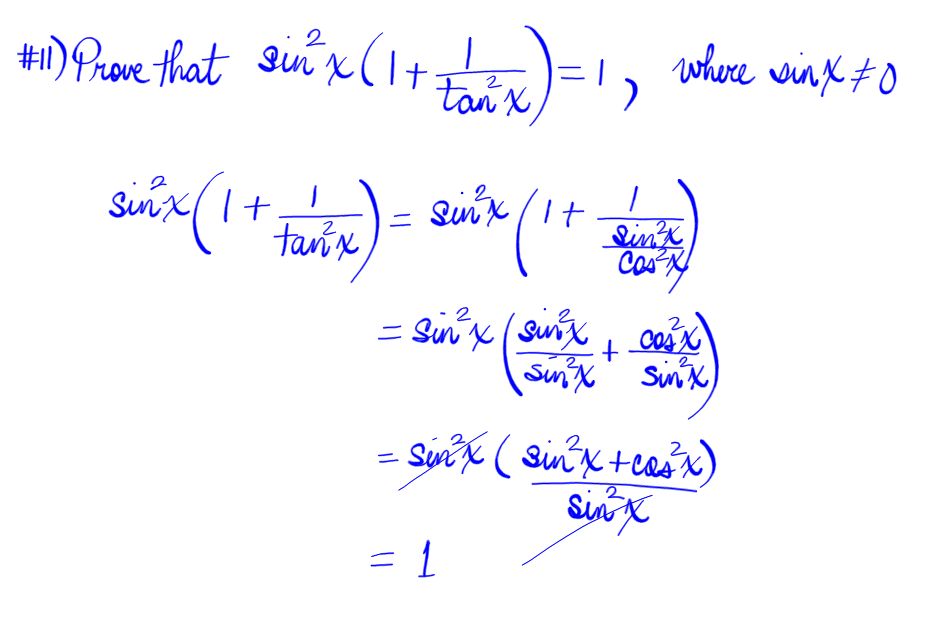 #11) Prove that sin²x(1 + 1/tan²x) = 1, where sin x ≠ 0
sin²x(1 + 1/tan²x) = sin²x(1 + 1/(sin²x/cos²x))
= sin²x(sin²x/sin²x + cos²x/sin²x)
= sin²x (sin²x + cos²x)/sin²x
= 1